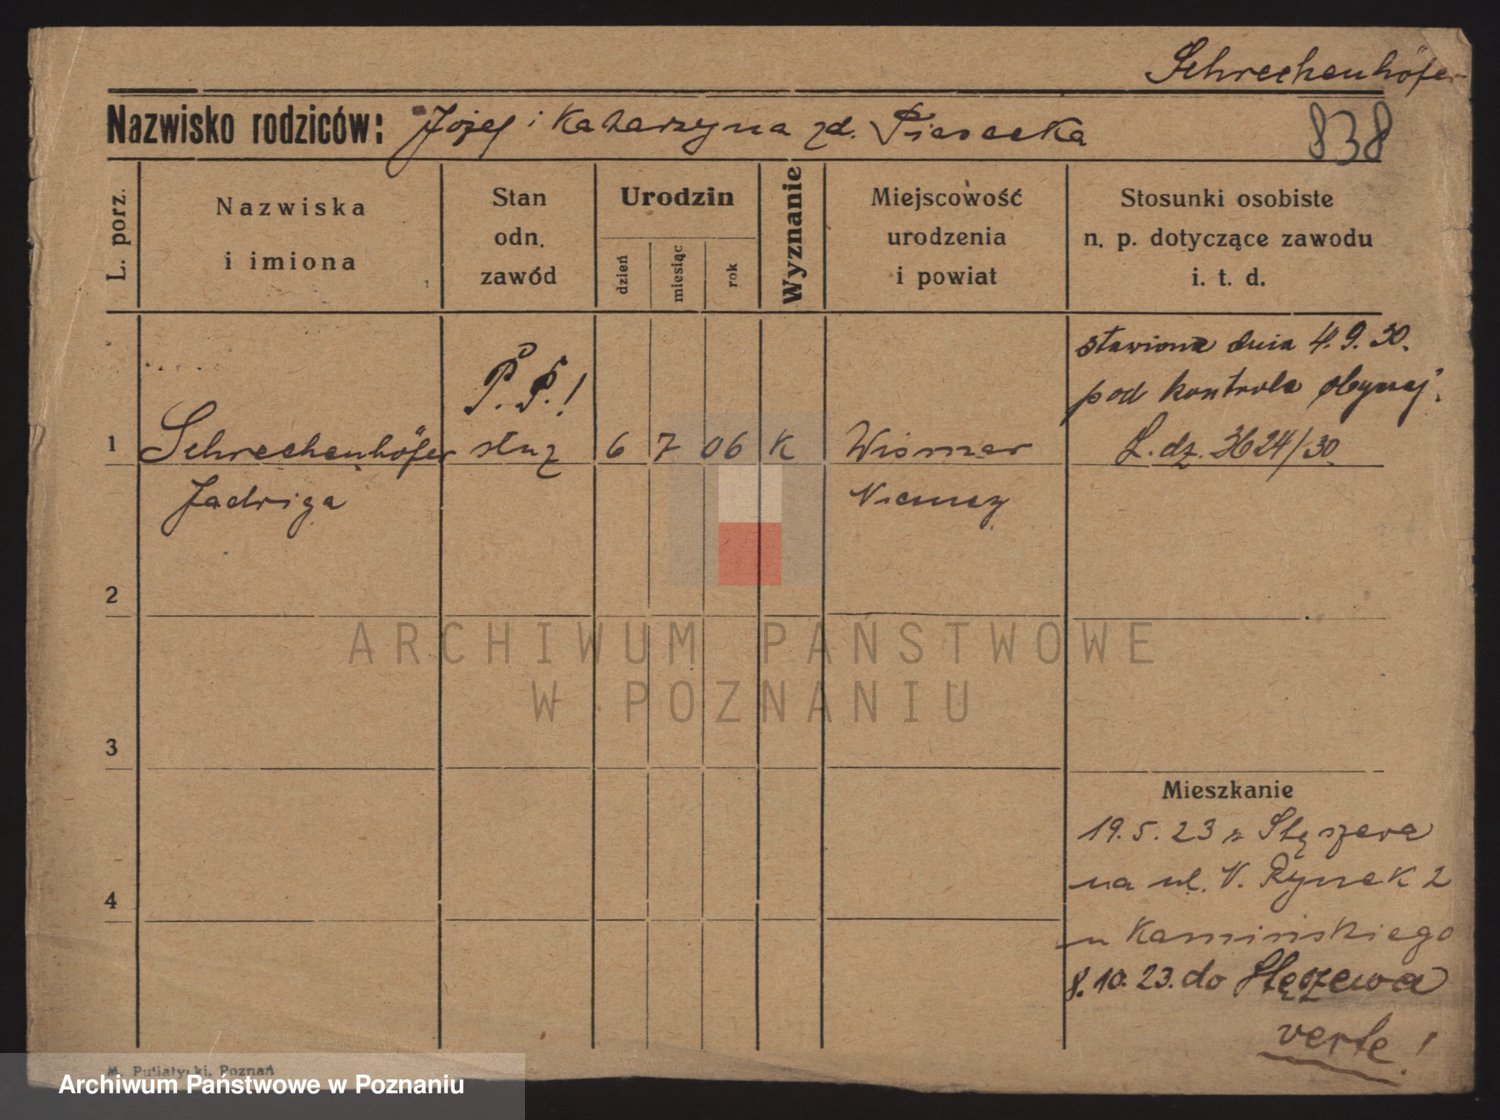 Schrechenhöfer
Nazwisko rodziców: Józef i Katarzyna zd. Piasecka
838
L. porz.
Nazwiska
i imiona
Stan
odn.
zawód
Urodzin
dzień
miesiąc
rok
Wyznanie
Miejscowość
urodzenia
i powiat
Stosunki osobiste
n. p. dotyczące zawodu
i. t. d.
stawiona dnia 4. 9. 30.
pod kontrolę obyczaj.
L. dz. 3624/30
P. P.!
1 Schrechenhöfer służ 6 7 06 K Wismar
Jadwiga Niemcy
2
3
4
ARCHIWUM PAŃSTWOWE
W POZNANIU
Mieszkanie
19. 5. 23 z Stęszewa
na ul. W. Rynek 2
u Kamińskiego
8. 10. 23. do Stęszewa
verte!
M. Putiatycki, Poznań
Archiwum Państwowe w Poznaniu